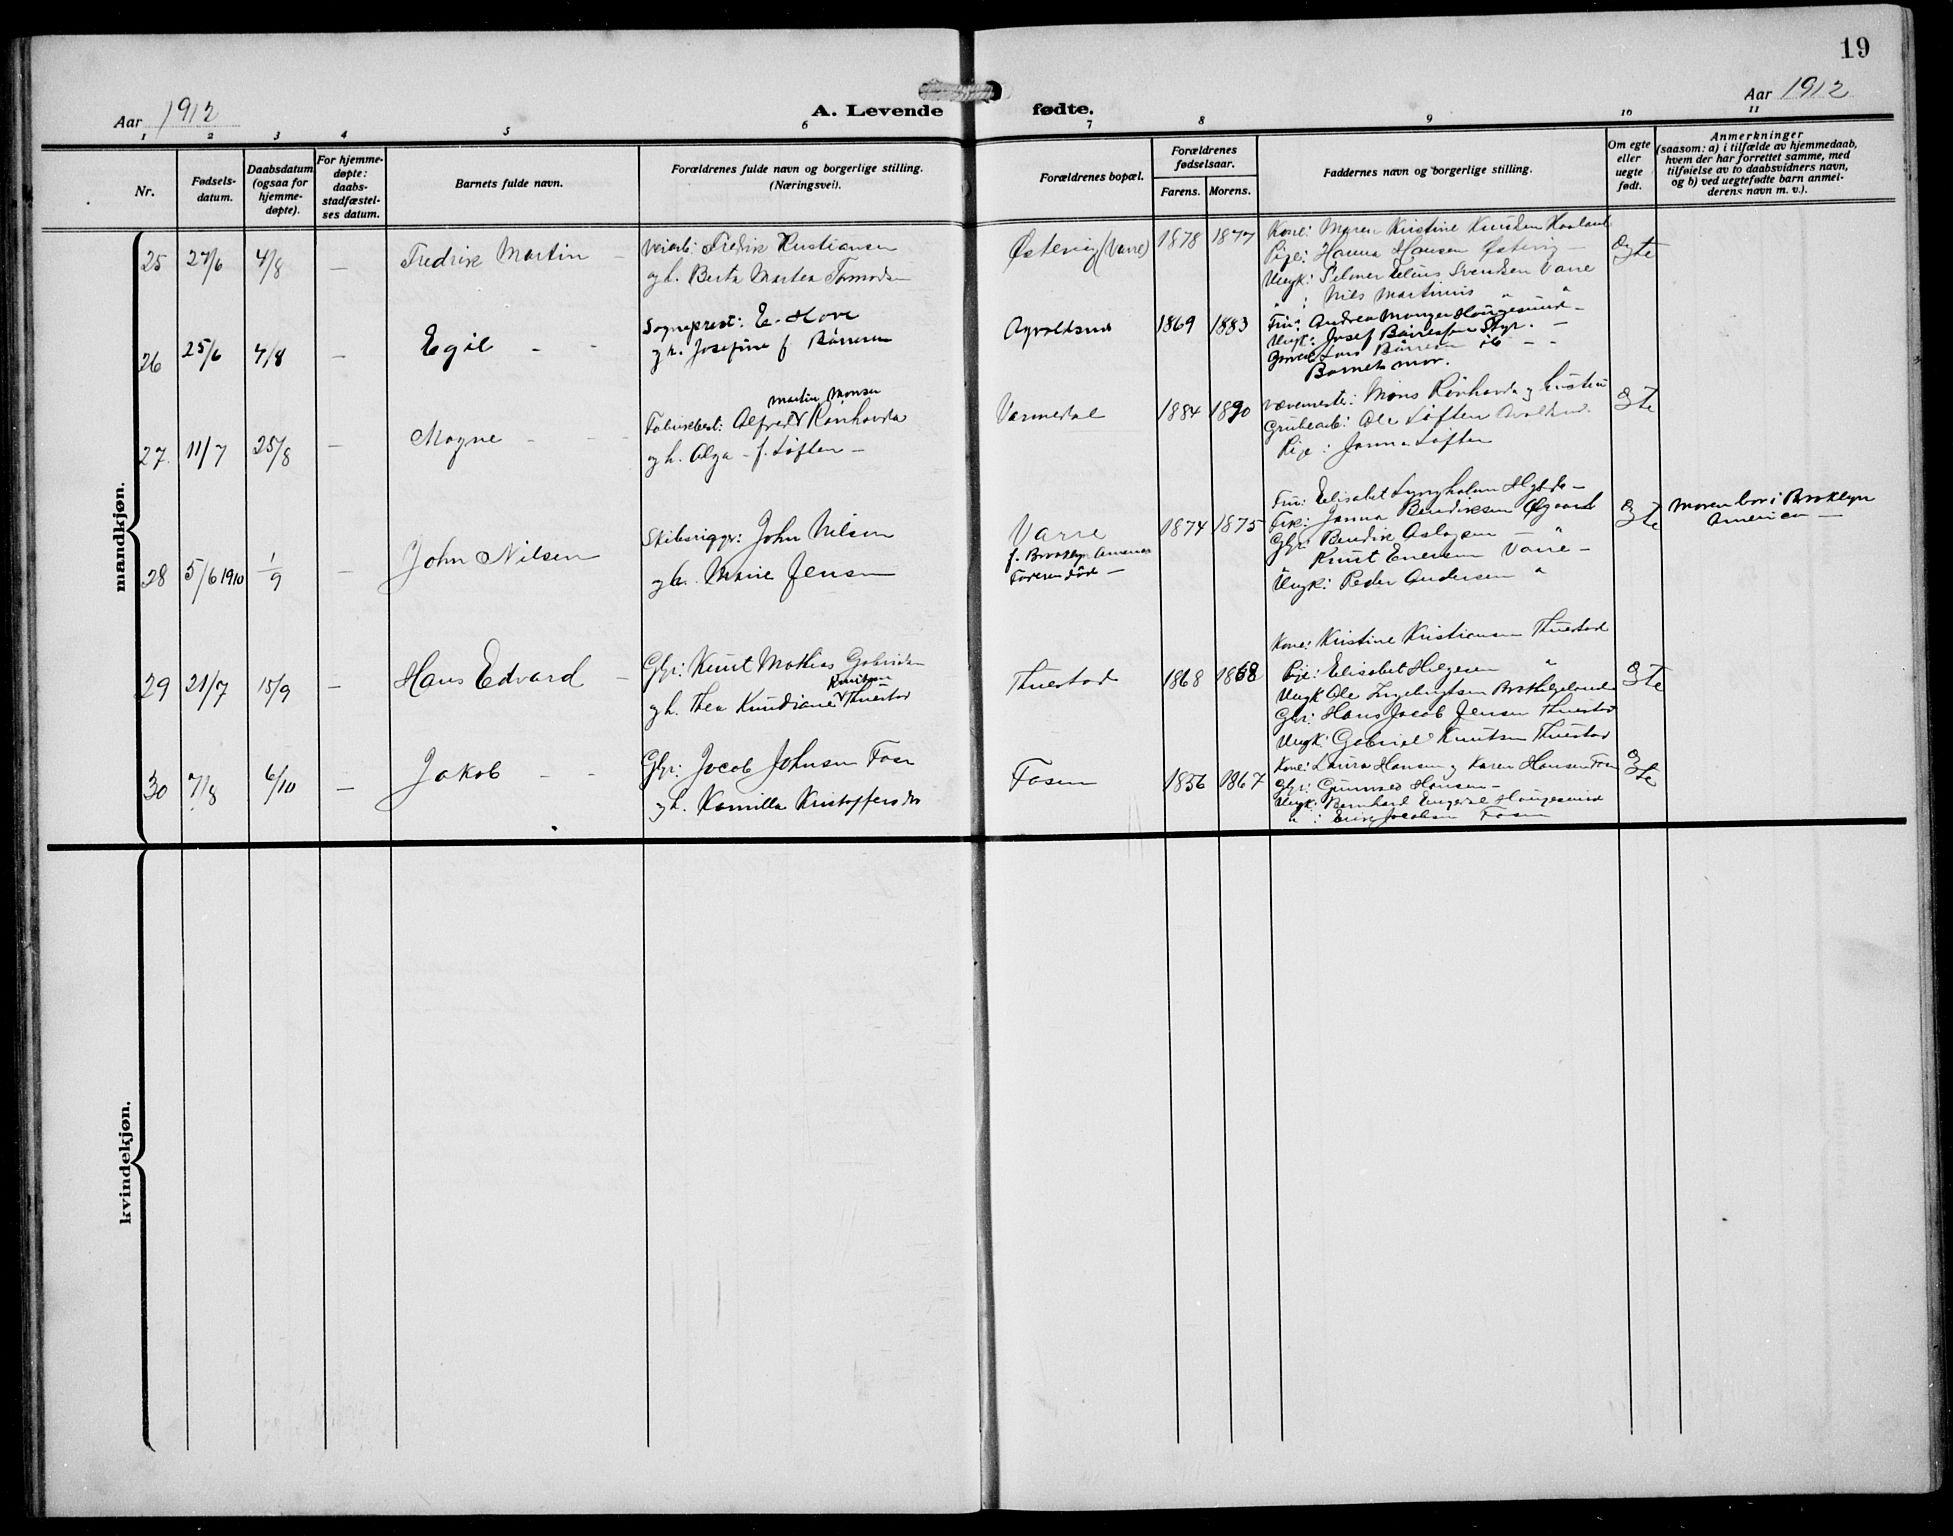 19
Aar 1912
A. Levende fødte.
Aar 1912
1 2 3 4 5 6 7 8 9 10 11
Nr.
Fødsels-
datum.
Daabsdatum
(ogsaa for
hjemme-
døpte).
For hjemme-
døpte:
daabs-
stadfæstel-
ses datum.
Barnets fulde navn.
Forældrenes fulde navn og borgerlige stilling.
(Næringsvei).
Forældrenes bopæl.
Forældrenes
fødselsaar.
Farens. Morens.
Faddernes navn og borgerlige stilling.
Om egte
eller
uegte
født.
Anmerkninger
(saasom: a) i tilfælde av hjemmedaab,
hvem der har forrettet samme, med
tilføielse av to daabsvidners navn,
og b) ved uegtefødte barn anmel-
derens navn m. v.).
mandkjøn.
25 27/6 4/8 — Fredrik Martin —
Veiarb: Fredrik Kristiansen
og h. Berta Martea
Østevig (Varre) 1878 1877
Kone: Maren Kristine Knudsen
Pige: Hanna Hansen Østevig —
Ungk: Selmer Svendsen Varre
" : Nils Martinius " "
Egte
26 25/6 4/8 — Egil — —
Sogneprest: E. Hove
og h. Josefine f Börresen
1869 1883
Fru: Andrea Haugesund —
Ungk: Josef Börresen —
Lars Börresen — —
Barnets mor.
27. 11/7 25/8 — Magne — —
Martin Monsen
Alfred V Rönhovda
og h. Olga — f. Löften —
Varmedal 1884 1890
Mons Rönhovda og hustru
Grubearb: Ole Löften
Pige: Janna Löften
Egte
28 5/6 1910 1/9 — John Nilsen
Skibsrigger: John Nilsen
og h. Marie Jensen
Varre
f. Brooklyn Amerika
Faren død —
1874 1875
Fru: Elisabet
Frk: Janna Bendiksen
Gbr: Bendik Aslagsen
Knut Varre —
Ungk: Peder Andersen "
Egte
Moren bor i Brooklyn
Amerika —
29 21/7 15/9 — Hans Edvard —
Gbr: Knut Mathias
Knutsen
og h. Thea V Thuestad
Thuestad 1868 1868
Kone: Kristine Kristiansen Thuestad
Pige: Elisabet Helgesen "
Ungk Ole Ingebrigtsen
Gbr: Hans Jacob Jensen Thuestad
Ungk: Gabriel Knutsen Thuestad
Egte
30 7/8 6/10 — Jakob — —
Gbr: Jacob Johnsen Fosen
og h. Kamilla
Fosen 1856 1867
Kone: Laura Hansen og Karen Hansen Fosen
Gbr: Hansen —
Ungk: Bernhard Haugesund
" : Jacobsen Fosen
Egte
kvindekjøn.